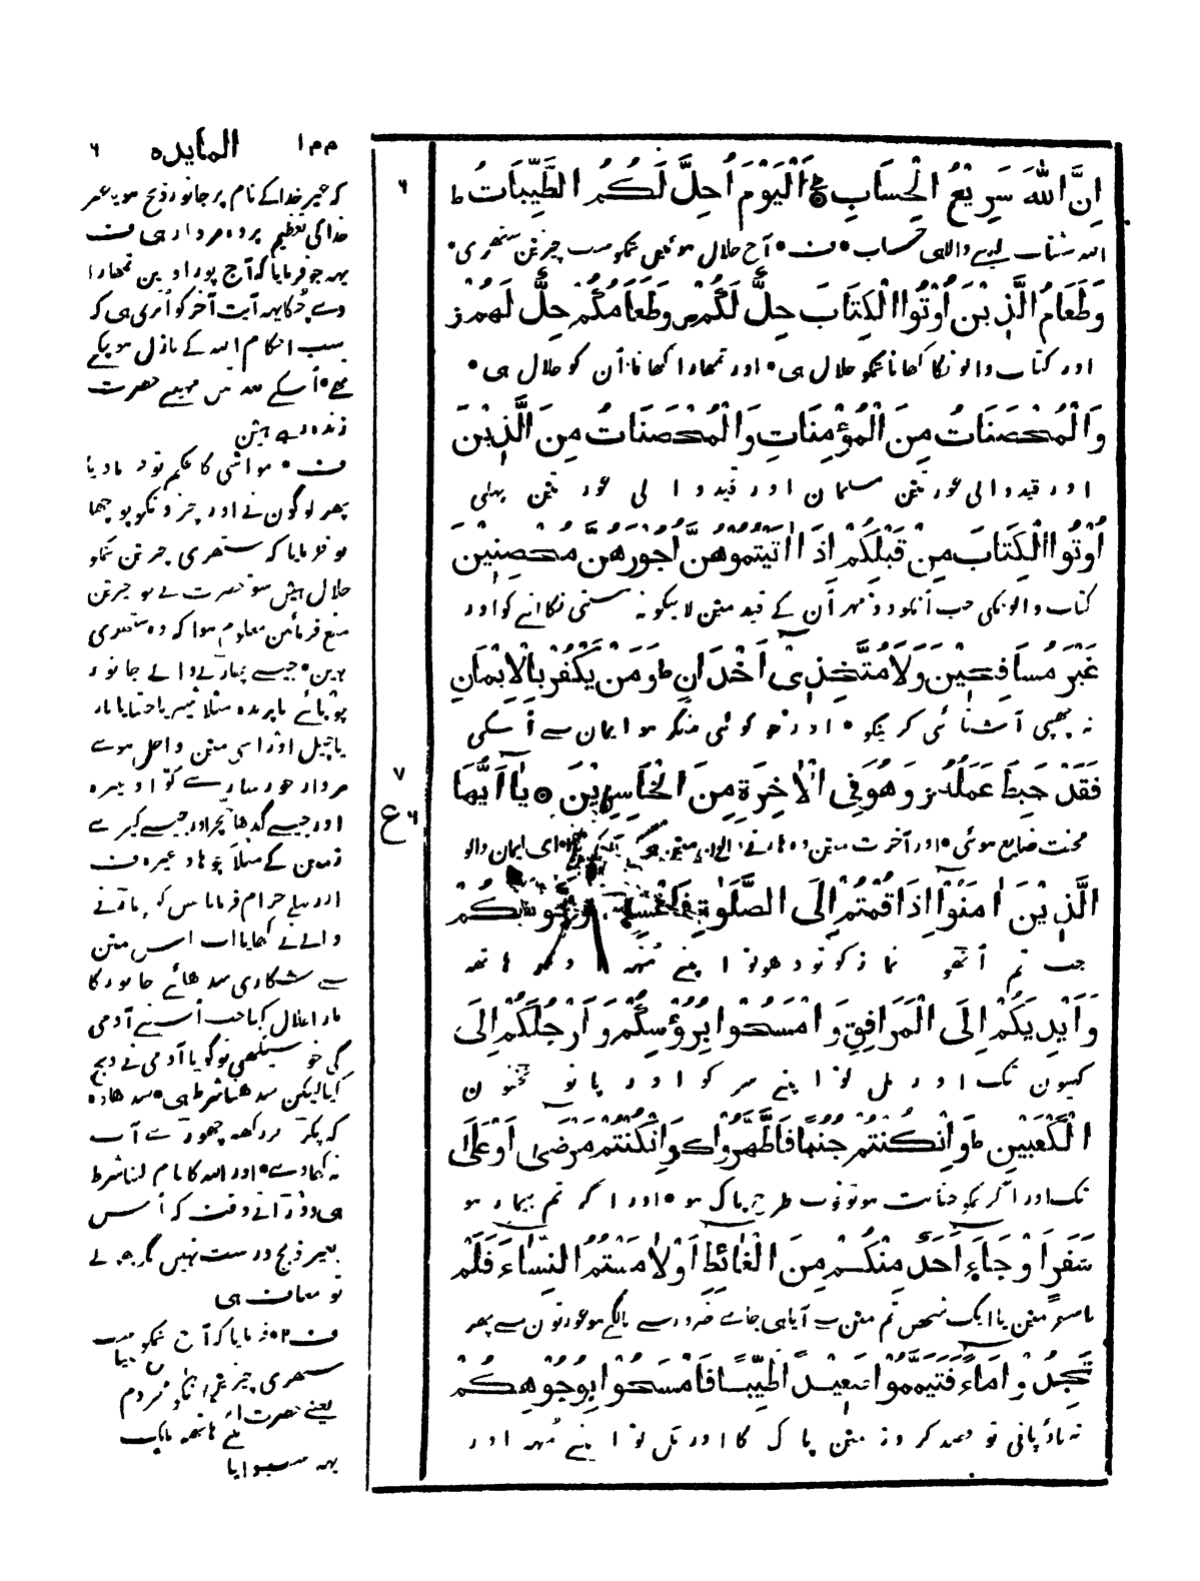 ١٨٢ المايده ٦
٦
اِنَّ اللّٰهَ سَرِيْعُ الْحِسَابِ ۞ اَلْيَوْمَ اُحِلَّ لَكُمُ الطَّيِّبَاتُ ط
الله شتاب لینے والا ہی حساب • ف • آج حلال ہوئیں تمکو سب چیزین ستھری •
وَطَعَامُ الَّذِيْنَ اُوْتُوا الْكِتَابَ حِلٌّ لَكُمْ ص وَطَعَامُكُمْ حِلٌّ لَهُمْ ز
اور کتاب والونکا کھانا تمکو حلال ہی • اور تمھارا کھانا اُن کو حلال ہی •
وَالْمُحْصَنَاتُ مِنَ الْمُؤْمِنَاتِ وَالْمُحْصَنَاتُ مِنَ الَّذِيْنَ
اور قید والی عورتین مسلمان اور قید والی عورتین پہلی
اُوْتُوا الْكِتَابَ مِنْ قَبْلِكُمْ اِذَا اٰتَيْتُمُوْهُنَّ اُجُوْرَهُنَّ مُحْصِنِيْنَ
کتاب والونکی جب اُنکو دو مہر اُن کے قید مین لانیکو نہ مستی نکالنے کو اور
غَيْرَ مُسَافِحِيْنَ وَلَا مُتَّخِذِيْ اَخْدَانٍ ط وَمَنْ يَكْفُرْ بِالْاِيْمَانِ
نہ چھپی آشنائی کرنیکو • اور جو کوئی منکر ہوا ایمان سے اُسکی
٧
فَقَدْ حَبِطَ عَمَلُهُ ز وَهُوَ فِي الْاٰخِرَةِ مِنَ الْخَاسِرِيْنَ ۞ يَا اَيُّهَا
٦ ع
محنت ضایع ہوئی • اور آخرت مین وہ ہارنے والون مین ہی ای ایمان والو
الَّذِيْنَ اٰمَنُوْا اِذَا قُمْتُمْ اِلَى الصَّلٰوةِ فَاغْسِلُوْا وُجُوْهَكُمْ
جب تم اُٹھو نماز کو تو دھو لو اپنے مُنہہ اور ہاتھہ
وَاَيْدِيَكُمْ اِلَى الْمَرَافِقِ وَامْسَحُوْا بِرُؤُسِكُمْ وَاَرْجُلَكُمْ اِلَى
کہنیون تک اور مل لو اپنے سر کو اور پانو ٹخنون
الْكَعْبَيْنِ ط وَاِنْ كُنْتُمْ جُنُبًا فَاطَّهَّرُوْا ط وَاِنْ كُنْتُمْ مَرْضٰى اَوْ عَلٰى
تک اور اگر تمکو جنابت ہو تو خوب طرح پاک ہو • اور اگر تم بیمار ہو
سَفَرٍ اَوْ جَاءَ اَحَدٌ مِنْكُمْ مِنَ الْغَائِطِ اَوْ لَامَسْتُمُ النِّسَاءَ فَلَمْ
یا سفر مین یا ایک شخص تم مین سے آیا ہی جاے ضرور سے یا لگے ہو عورتون سے پھر
تَجِدُوْا مَاءً فَتَيَمَّمُوْا صَعِيْدًا طَيِّبًا فَامْسَحُوْا بِوُجُوْهِكُمْ
نہ پاؤ پانی تو قصد کرو زمین پاک کا اور مل لو اپنے مُنہہ اور
کہ غیر خدا کے نام پر جانور ذبح ہو یا غیر
خدا کی تعظیم پر وہ مردار ہی ف
یہہ جو فرمایا کہ آج پورا دین تمھارا
دے چکا یہہ آیت آخر کو اُتری ہی کہ
سب احکام الله کے نازل ہو چکے
تھے • اُسکے بعد تین مہینے حضرت
زندہ رہے ہین
ف • مواشی کا حکم تو فرما دیا
پھر لوگون نے اور چیزونکو پوچھا
تو فرمایا کہ ستھری چیزین تمکو
حلال ہین سو حضرت نے جو چیزین
منع فرمائین معلوم ہوا کہ وہ ستھری
نہین • جیسے پھاڑنے والے جانور
چوپائے یا پرندہ مثلا شیر یا چیتا یا باز
یا چیل اور اسی مین داخل ہوے
مردار خور سارے کوّا وغیرہ
اور جیسے گدھا خچر اور جیسے کیڑے
زمین کے مثلا چوہا وغیرہ ف
اور پہلے حرام فرمایا جس کو پھاڑنے
والے نے کھایا اب اس مین
سے شکاری سدھائے جانور کا
مارا حلال کیا جب اُسنے آدمی
کی خو سیکھی تو گویا آدمی نے ذبح
کیا لیکن سدھنا شرط ہی • سدھا وہ
کہ پکڑ کر رکھہ چھوڑے آپ
نہ کھاوے • اور الله کا نام لینا شرط
ہی دوڑانے وقت کہ اُس
بغیر ذبح درست نہین مگر بھولے
تو معاف ہی
ف ٢ • فرمایا کہ آج تمکو سب
ستھری چیز
یعنے حضرت
یہہ